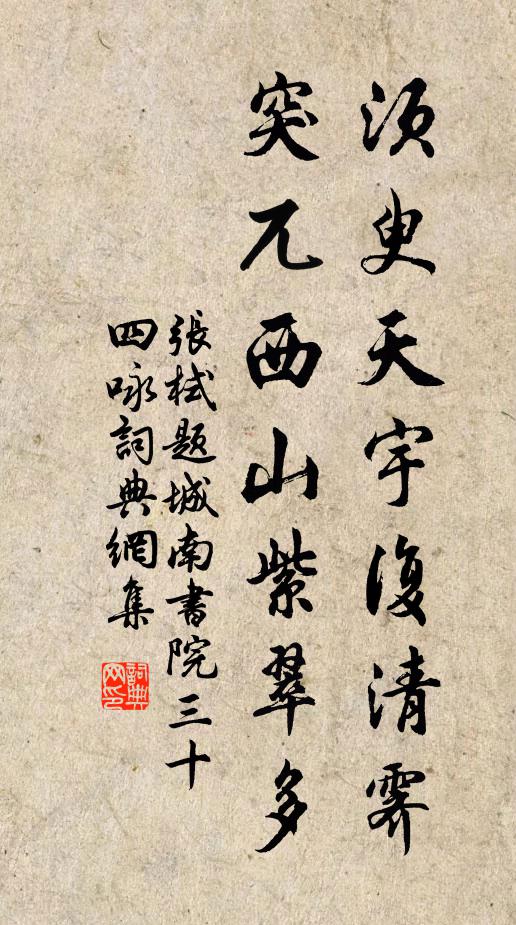 須臾天宇復清霽
突兀西山紫翠多
張栻題城南書院三十
四咏詞典網集
詞典
网印